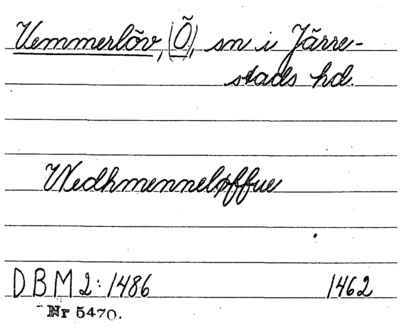 Vemmerlöv, (Ö), sn i Järre-
stads hd.
Wedhmenneløffue
DBM 2: 1486 1462
Nr 5470.